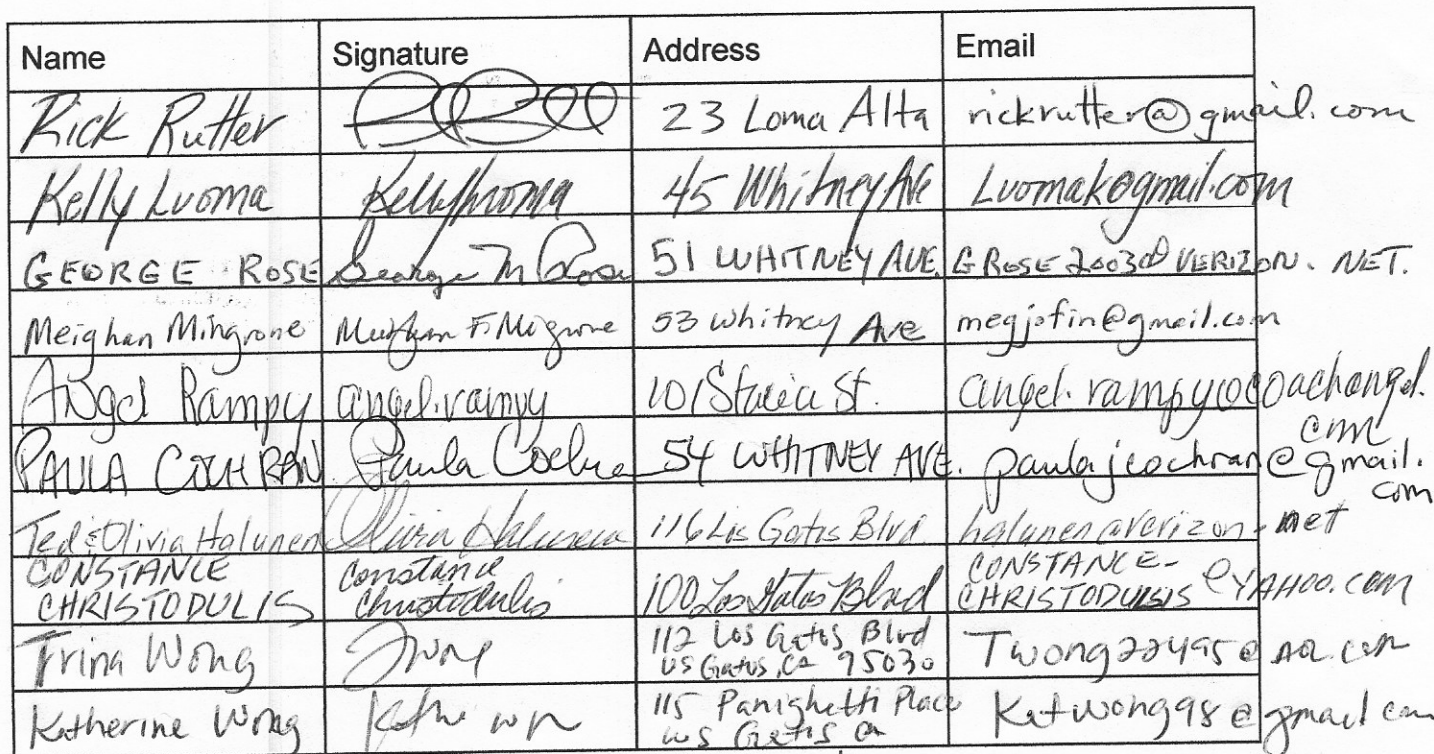 Name Signature Address Email
Rick Rutter 23 Loma Alta rickrutter@gmail.com
Kelly Luoma Kelly Luoma 45 Whitney Ave Luomak@gmail.com
GEORGE ROSE George M Rose 51 WHITNEY AVE. GROSE2003@VERIZON.NET.
Meighan Mingrone Meighan F. Mingrone 53 Whitney Ave megjofin@gmail.com
Angel Rampy angel.rampy 101 St. angel.rampy@coachangel.
com
PAULA COCHRAN Paula Cochran 54 WHITNEY AVE. paulajcochran@gmail.
com
Ted & Olivia Halunen Olivia Halunen 116 Los Gatos Blvd halunen@verizon.net
CONSTANCE constance CONSTANCE-
CHRISTODULIS christodulis 100 Los Gatos Blvd @YAHOO.COM
Trina Wong 112 Los Gatos Blvd Twong22495@aol.com
Los Gatos, Ca 95030
Katherine Wong 115 Panighetti Place Katwong98@gmail com
Los Gatos Ca